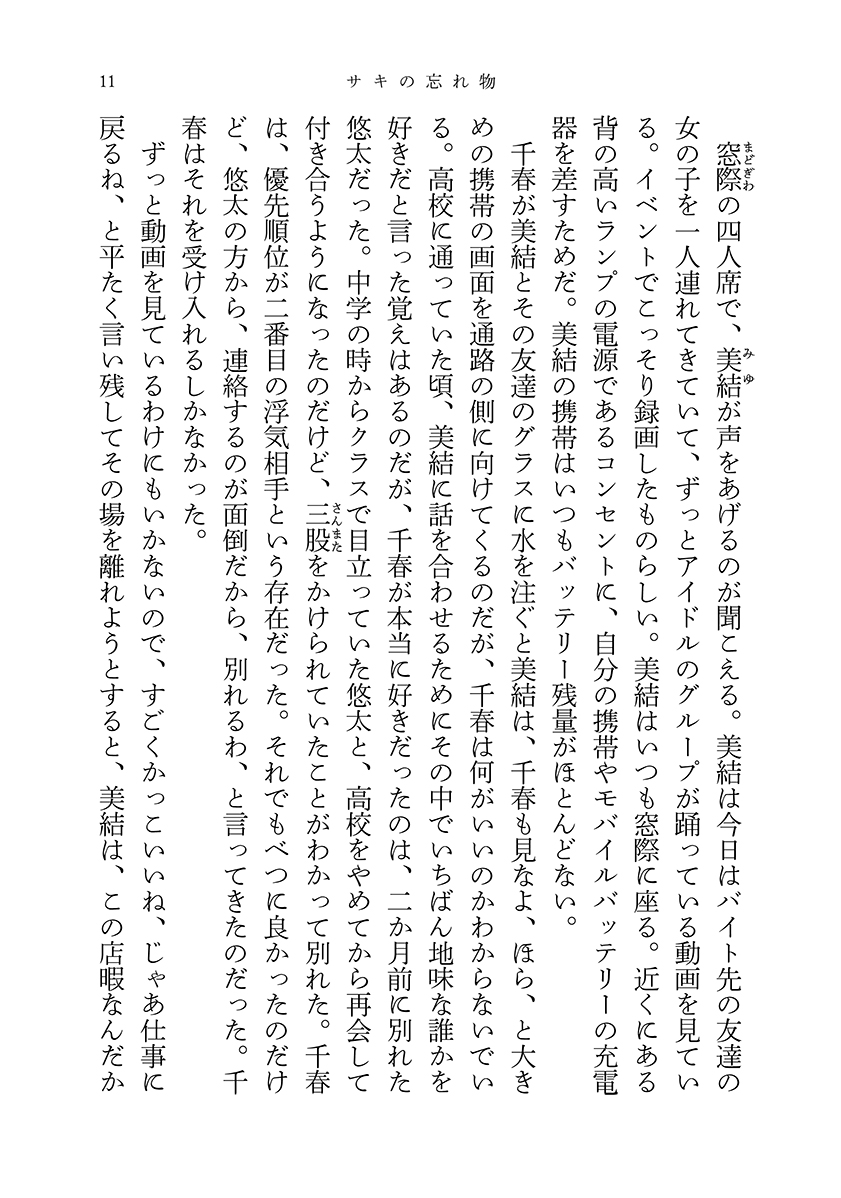 11
サキの忘れ物
窓際の四人席で、美結が声をあげるのが聞こえる。美結は今日はバイト先の友達の
まどぎわ
みゆ
女の子を一人連れてきていて、ずっとアイドルのグループが踊っている動画を見てい
る。イベントでこっそり録画したものらしい。美結はいつも窓際に座る。近くにある
背の高いランプの電源であるコンセントに、自分の携帯やモバイルバッテリーの充電
器を差すためだ。美結の携帯はいつもバッテリー残量がほとんどない。
千春が美結とその友達のグラスに水を注ぐと美結は、千春も見なよ、ほら、と大き
めの携帯の画面を通路の側に向けてくるのだが、千春は何がいいのかわからないでい
る。高校に通っていた頃、美結に話を合わせるためにその中でいちばん地味な誰かを
好きだと言った覚えはあるのだが、千春が本当に好きだったのは、二か月前に別れた
悠太だった。中学の時からクラスで目立っていた悠太と、高校をやめてから再会して
付き合うようになったのだけど、三股をかけられていたことがわかって別れた。千春
さんまた
は、優先順位が二番目の浮気相手という存在だった。それでもべつに良かったのだけ
ど、悠太の方から、連絡するのが面倒だから、別れるわ、と言ってきたのだった。千
春はそれを受け入れるしかなかった。
ずっと動画を見ているわけにもいかないので、すごくかっこいいね、じゃあ仕事に
戻るね、と平たく言い残してその場を離れようとすると、美結は、この店暇なんだか